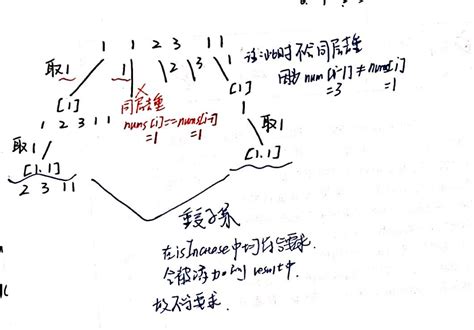 1 1 2 3 1 1
取1 1 2 3 1
[1] [1]
同层去重
nums[i]==nums[i-1]
=1 =1
此时不会同层去重
因为 num[i-1]≠nums[i]
=3 =1
1 2 3 1 1
取1 取1
[1.1] [1.1]
2 3 1 1
重复子集
在isIncrease中均符合要求.
会被添加到result中
故不符要求.